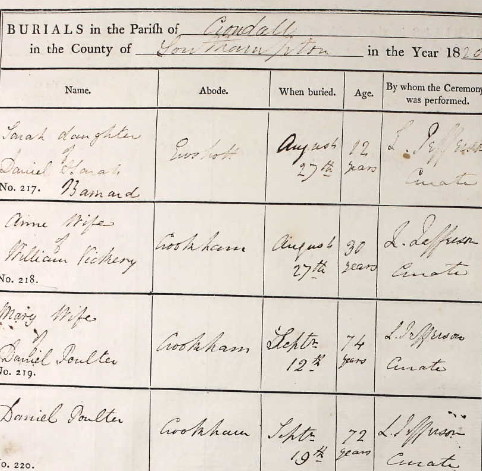 BURIALS in the Parish of Crondall
in the County of Southampton in the Year 1820
Name. Abode. When buried. Age. By whom the Ceremony was performed.
Sarah daughter
of
Daniel & Sarah
Barnard
No. 217.
Ewshott
August
27th
12
years
L. Jefferson
Curate
Anne Wife
of
William Vickery
No. 218.
Crookham
August
27th
30
years
L. Jefferson
Curate
Mary Wife
of
Daniel Poulter
No. 219.
Crookham
Septr
12th
74
years
L. Jefferson
Curate
Daniel Poulter
No. 220.
Crookham
Septr
19th
72
years
L. Jefferson
Curate